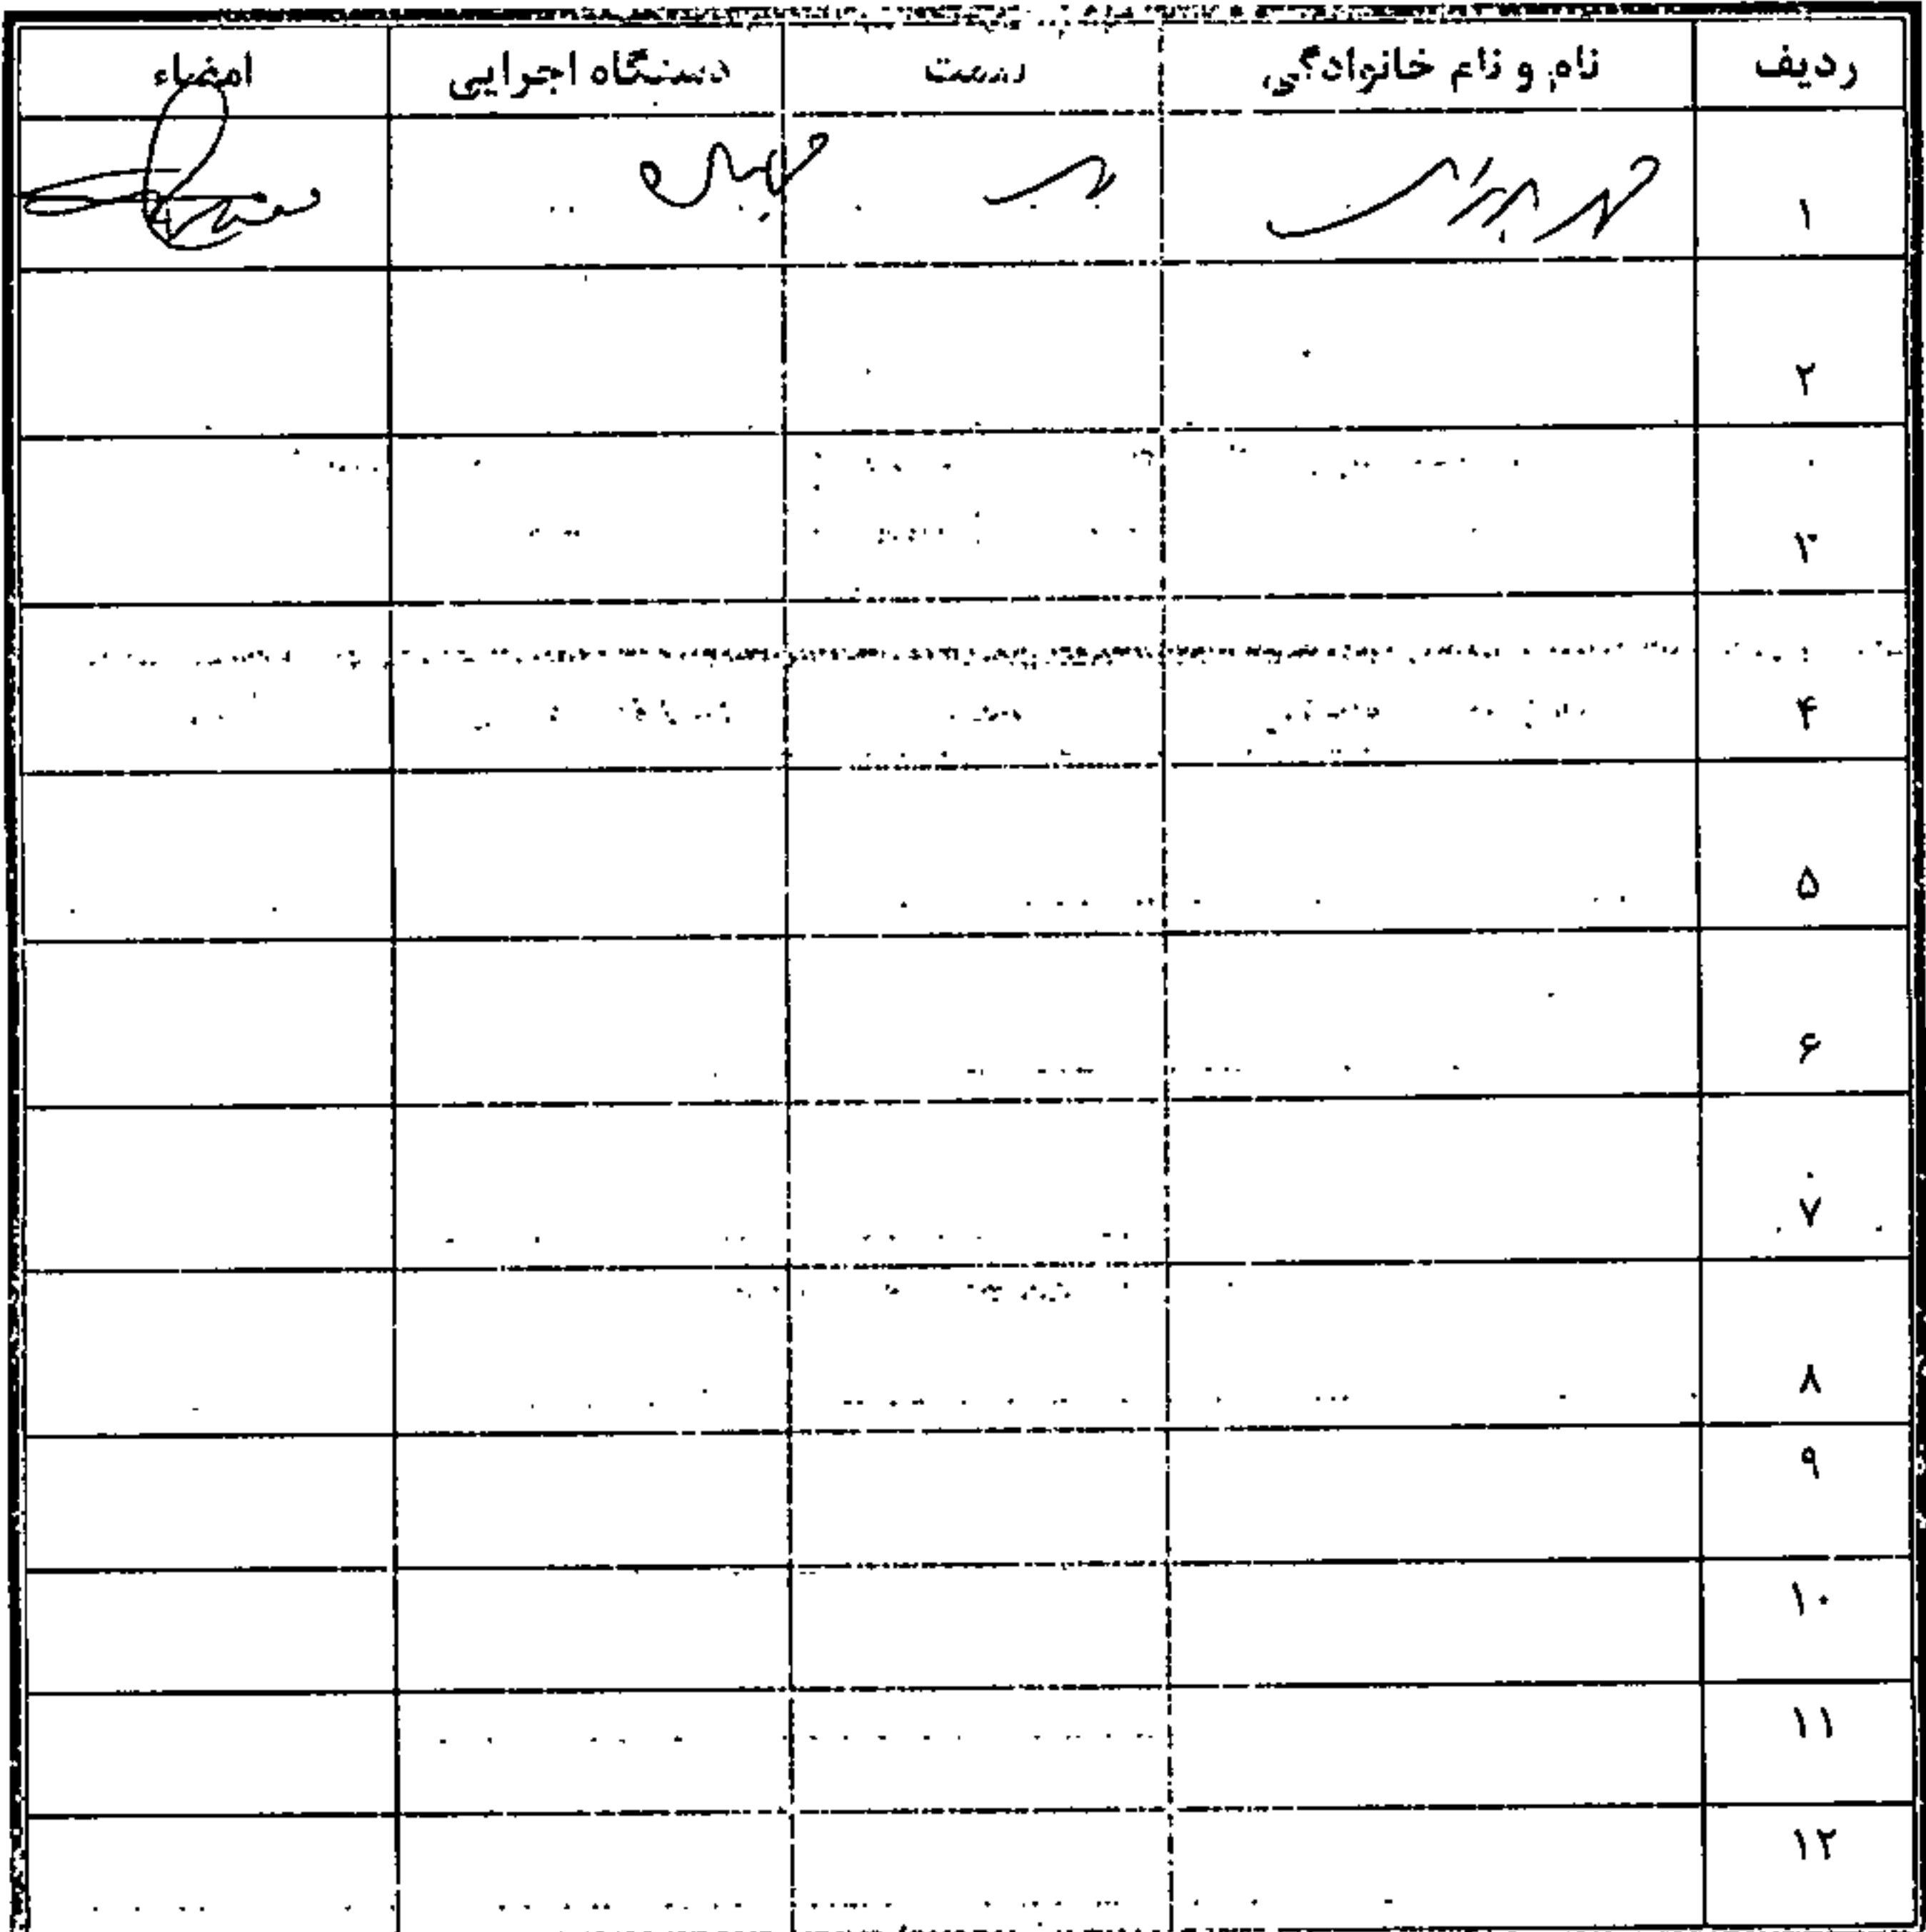 ردیف نام و نام خانوادگی سمت دستگاه اجرایی امضاء
۱
۲
۳
۴
۵
۶
۷
۸
۹
۱۰
۱۱
۱۲